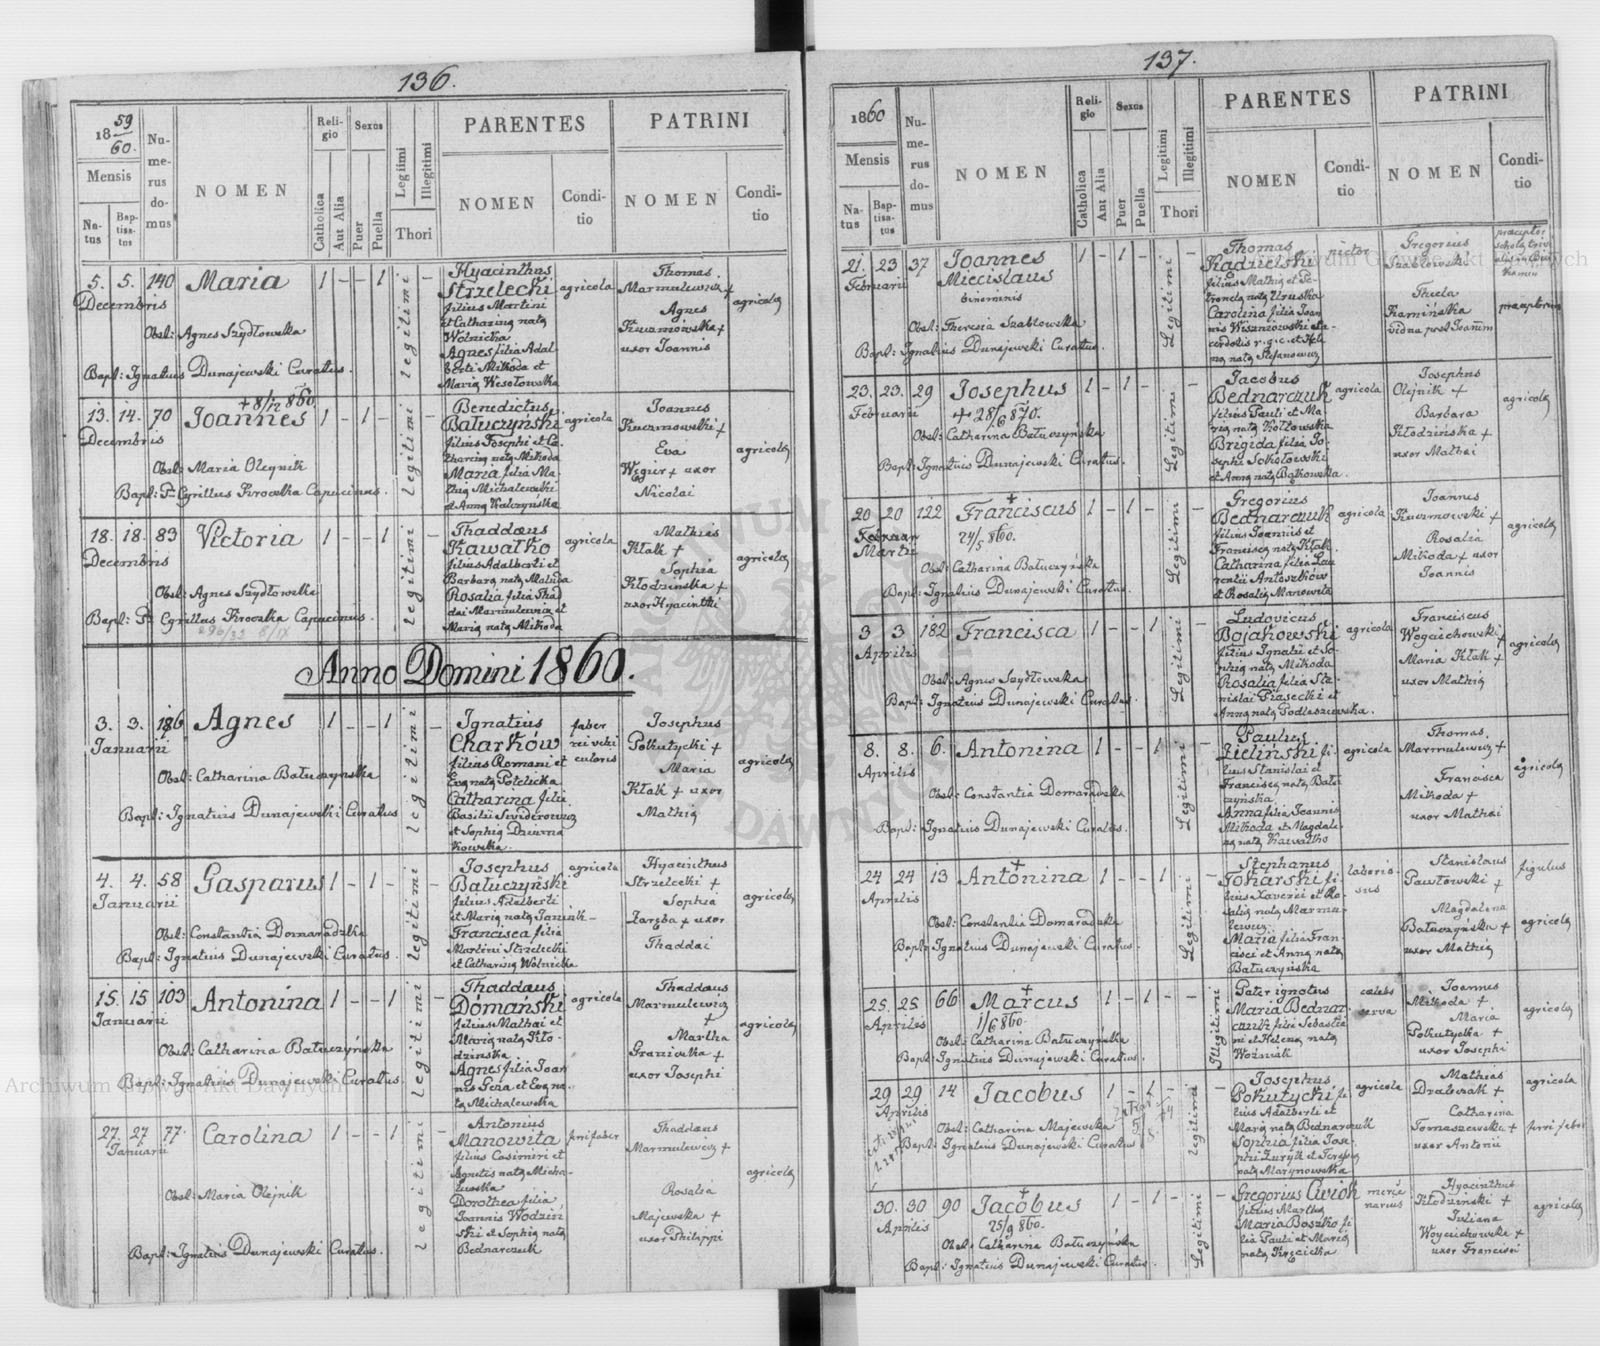 136.
18 59/60.
Mensis
Natus
Baptisatus
Numerus domus
NOMEN
Religio
Catholica
Aut Alia
Sexus
Puer
Puella
Legitimi
Illegitimi
Thori
PARENTES
NOMEN
Conditio
PATRINI
NOMEN
Conditio
5. 5. 140 Maria 1 – – 1 legitimi –
Decembris
Obst: Agnes Szydłowska
Bapt: Ignatius Dunajewski Curatus.
Hyacinthus
Strzelecki
filius Martini
et Catharina nata
Wolnicka
Agnes filia Adal-
berti Mikoda et
Maria Wesołowska
agricola
Thomas
Marmulewicz +
Agnes
Kuczmowska +
uxor Joannis
agricola
13. 14. 70 Joannes 1 – 1 – legitimi –
+ 8/12 860.
Decembris
Obst: Maria Oleynik
Bapt: Pr Cyrillus Kroczka Capucinus.
Benedictus
Bałuczyński
filius Josephi et Ca-
tharina nata Mikoda
Maria filia Ma-
thia Michalewski
et Anna Kalczyńska
agricola
Joannes
Kuczmowski +
Eva
Węgier + uxor
Nicolai
agricola
18. 18. 83 Victoria 1 – – 1 legitimi –
Decembris
Obst: Agnes Szydłowska
Bapt: Pr Cyrillus Kroczka Capucinus.
Thaddaus
Kawałko
filius Adalberti et
Barbara nata Matuda
Rosalia filia Thad
dai Marmulewicz et
Maria nata Mikoda
agricola
Mathias
Kłak +
Sophia
Kłodzinska +
uxor Hyacinthi
agricola
Anno Domini 1860.
3. 3. 186 Agnes 1 – – 1 legitimi –
Januarii
Obst: Catharina Bałuczyńska
Bapt: Ignatius Dunajewski Curatus
Ignatius
Charków
filius Romani et
Eva nata Potelicka
Catharina filia
Basilii Swiderowicz
et Sophia Dziurna
kowska.
faber
rei vehi
culoris
Josephus
Pokutycki +
Maria
Kłak + uxor
Mathia
agricola
4. 4. 58 Gasparus 1 – 1 – legitimi –
Januarii
Obst: Constantia Domaradzka
Bapt: Ignatius Dunajewski Curatus.
Josephus
Bałuczyński
filius Adalberti
et Maria nata Janiuk-
Francisca filia
Martini Strzelecki
et Catharina Wolnicka
agricola
Hyacinthus
Strzelecki +
Sophia
Zaręba + uxor
Thaddai
agricola
15. 15 103 Antonina 1 – – 1 legitimi –
Januarii
Obst: Catharina Bałuczyńska
Bapt: Ignatius Dunajewski Curatus.
Thaddaus
Domański
filius Mathai et
Maria nata Kło-
dzinska
Agnes filia Joan
nis Gera et Eva na-
ta Michalewska
agricola
Thaddaus
Marmulewicz
+
Martha
Graniczka +
uxor Josephi
agricola
27. 27. 77. Carolina 1 – – 1 legitimi –
Januarii
Obst: Maria Olejnik
Bapt: Ignatius Dunajewski Curatus.
Antonius
Manowita
filius Casimiri et
Agnetis nata Micha-
lewska
Dorothea filia
Joannis Wodziń
ski et Sophia nata
Bednarczuk
ferrifaber
Thaddaus
Marmulewicz +
Rosalia
Majewska +
uxor Philippi
agricola
137.
1860
Mensis
Natus
Baptisatus
Numerus domus
NOMEN
Religio
Catholica
Aut Alia
Sexus
Puer
Puella
Legitimi
Illegitimi
Thori
PARENTES
NOMEN
Conditio
PATRINI
NOMEN
Conditio
21. 23 37 Joannes 1 – 1 – Legitimi –
Februarii Miecislaus
binominis
Obst: Theresia Szabłowska
Bapt: Ignatius Dunajewski Curatus.
Thomas
Radzielski
filius Mathia et Pe-
tronela nata Uruska
Carolina filia Joan
nis Wiszniowski sa-
cerdotis r. g. c. et Hele
na nata Stefanowicz
pictor
Gregorius
Szabłowski
Thecla
Kamińska
vidua post Joannem
præceptor
schola trivi
præceptorissa
23. 23. 29 Josephus 1 – 1 – Legitimi –
Februarii + 28/6 870.
Obst: Catharina Bałuczyńska
Bapt: Ignatius Dunajewski Curatus.
Jacobus
Bednarczuk
filius Pauli et Ma-
ria nata Kotłowska
Brigida filia Jo-
sephi Sokołowski
et Anna nata Bąkowska.
agricola
Josephus
Olejnik +
Barbara
Kłodzińska +
uxor Mathai
agricola
20 20 122 Franciscus 1 – 1 – Legitimi –
+ 24/5 860.
Martii
Obst: Catharina Bałuczyńska
Bapt: Ignatius Dunajewski Curatus.
Gregorius
Bednarczuk
filius Joannis et
Francisca nata Kłak.
Catharina filia Lau
rentii Antoszków
et Rosalia Manowita
agricola
Joannes
Kuczmowski +
Rosalia
Mikoda + uxor
Joannis
agricola
3 3 182 Francisca 1 – – 1 Legitimi –
Aprilis
Obst: Agnes Szydłowska
Bapt: Ignatius Dunajewski Curatus.
Ludovicus
Bojakowski
filius Ignatii et So-
phia nata Mikoda
Rosalia filia Sta-
nislai Piasecki et
Anna nata Podlaszewska.
agricola
Franciscus
Woyciechowski +
Maria Kłak +
uxor Mathia
agricola
8. 8. 6. Antonina 1 – – 1 Legitimi –
Aprilis
Obst: Constantia Domaradzka
Bapt: Ignatius Dunajewski Curatus.
Paulus
Zieliński fi-
lius Stanislai et
Francisca nata Bału-
czyńska
Anna filia Joannis
Mikoda et Magdale-
na nata Kawałko
agricola
Thomas
Marmulewicz +
Francisca
Mikoda +
uxor Mathai
agricola
24 24 13 Antonina 1 – – 1 Legitimi –
+
Aprilis
Obst: Constantia Domaradzka
Bapt: Ignatius Dunajewski Curatus.
Stephanus
Tokarski fi-
lius Xaverii et Ro-
salia nata Marmu-
lewicz
Maria filia Fran-
cisci et Anna nata
Bałuczyńska
laborio-
sus
Stanislaus
Pawłowski +
Magdalena
Bałuczyńska +
uxor Mathia
figulus
agricola
25. 25. 66 Marcus 1 – 1 – – Illegitimi
+ 1/6 860.
Aprilis
Obst: Catharina Bałuczyńska
Bapt: Ignatius Dunajewski Curatus.
Pater ignotus
Maria Bednar
czuk filia Sebastia
ni et Helena nata
Woźniak
cælebs
serva
Joannes
Mikoda +
Maria
Pokutycka +
uxor Josephi
agricola
29 29 14 Jacobus 1 – 1 – Legitimi –
Aprilis
Obst: Catharina Majewska
Bapt: Ignatius Dunajewski Curatus
Josephus
Pokutycki fi-
lius Adalberti et
Maria nata Bednarczuk
Sophia filia Jose-
phi Zuryk et Teresa
nata Marynowska
agricola
Mathias
Drabczak +
Catharina
Tomaszewska +
uxor Antonii
agricola
ferri faber
30. 30 90 Jacobus 1 – 1 – Legitimi –
+ 25/9 860.
Aprilis
Obst: Catharina Bałuczyńska
Bapt: Ignatius Dunajewski Curatus.
Gregorius Cwiok
filius Martha
Maria Boszko fi-
lia Pauli et Maria
nata Kręcicka
merce
narius
Hyacinthus
Kłodzinski +
Juliana
Woyciechowska +
uxor Francisci
agricola
Archiwum Główne Akt Dawnych